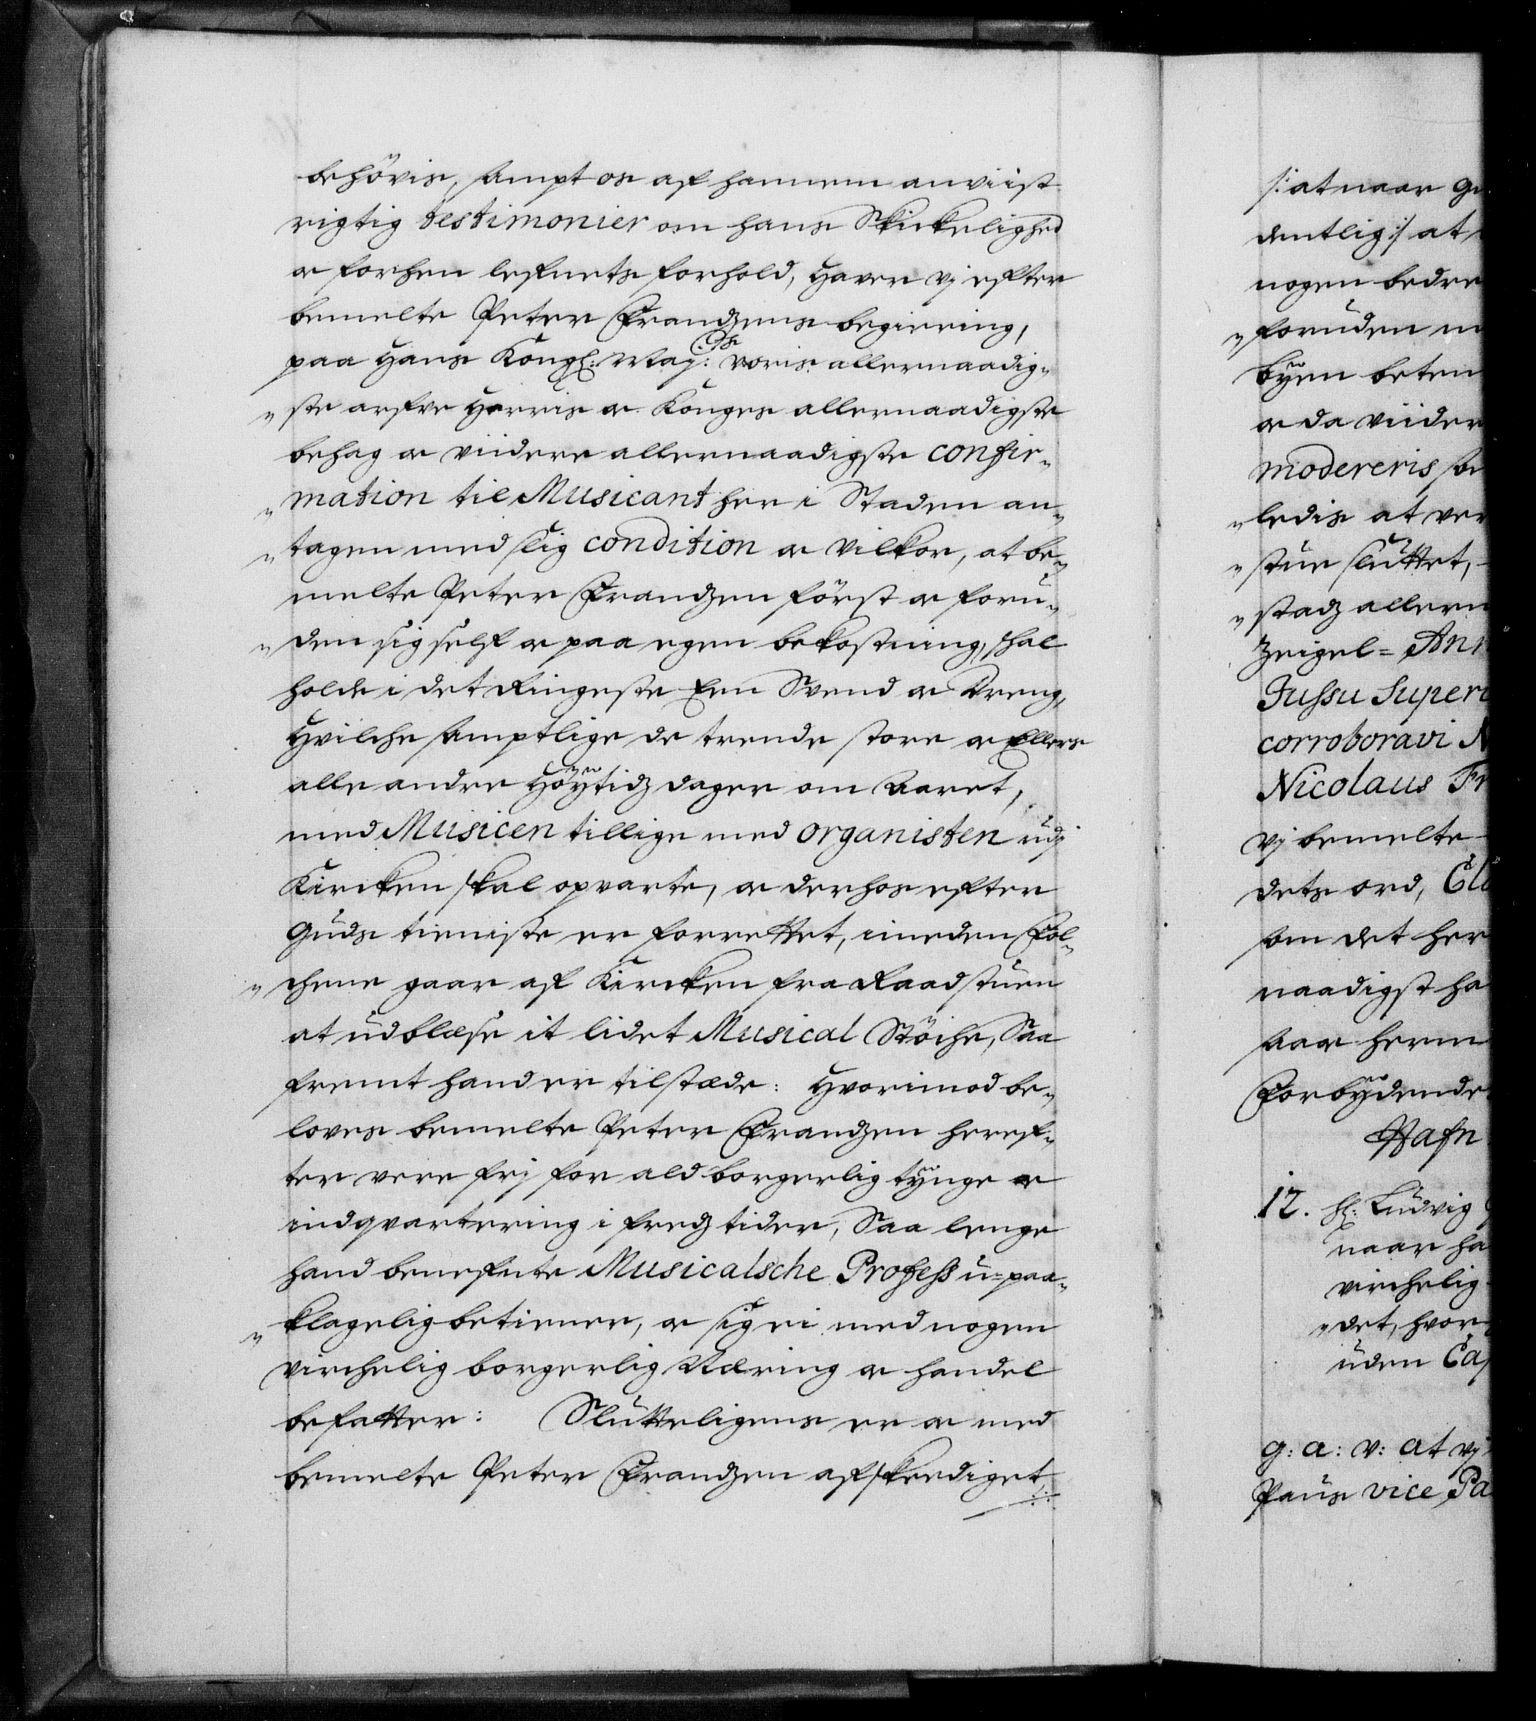 behövis, sampt os af hannem anviist
rigtig testimonier om hans Skickelighed
oc forhen lefnets forhold, Haver vj efter
bemelte Peter Frandzens begiering,
paa Hans Kongl: May:ts voris allernaadig„
„ste arfve Herris oc Konges allernaadigste
behag oc viidere allernaadigste confir„
„mation til Musicant her i Staden an„
„tagen med slig condition oc vilkor, at be„
melte Peter Frandzen först oc foru„
„den sig self oc paa egen bekostning, skal
holde i det Ringeste Een Svend oc Dreng,
Hvilche samptlige de trende store oc Ellers
alle andre Höÿtidz dager om Aaret,
med Musicen tillige med organisten udj
Kircken skal opvarte, oc derhos efter
Guds tieniste er forrettet, imeden Fol„
„chene gaar af Kircken fra Raadstuen
at udblæse it lidet Musical Stöche, Saa
fremt hand er tilstæde: Hvorimod be„
loves bemelte Peter Frandzen heref„
ter vere frj for ald borgerlig tÿnge oc
indqvartering i fredz tider, Saa lenge
hand benefnte Musicalsche Profess u=paa„
„klagelig betiener, oc sig ei med nogen
virchelig borgerlig Næring oc handel
befatter: Slutteligens er oc med
bemelte Peter Frandzen afskeediget,
/: at naar
dentlig :/ at
nogen bedre
„foruden
bÿen
oc da viider
modereris
„ledis at
„stue sluttet,
„stadz
Zeigel=
Jussu Super
corroboravi
Nicolaus
vj bemelte
dets ord,
om det her
naadigst ha
Forbÿdende
Hafn
12. hl: Ludvig
naar ha
virchelig
„det, hvor
uden
g: a: v: at vj
Paus vice